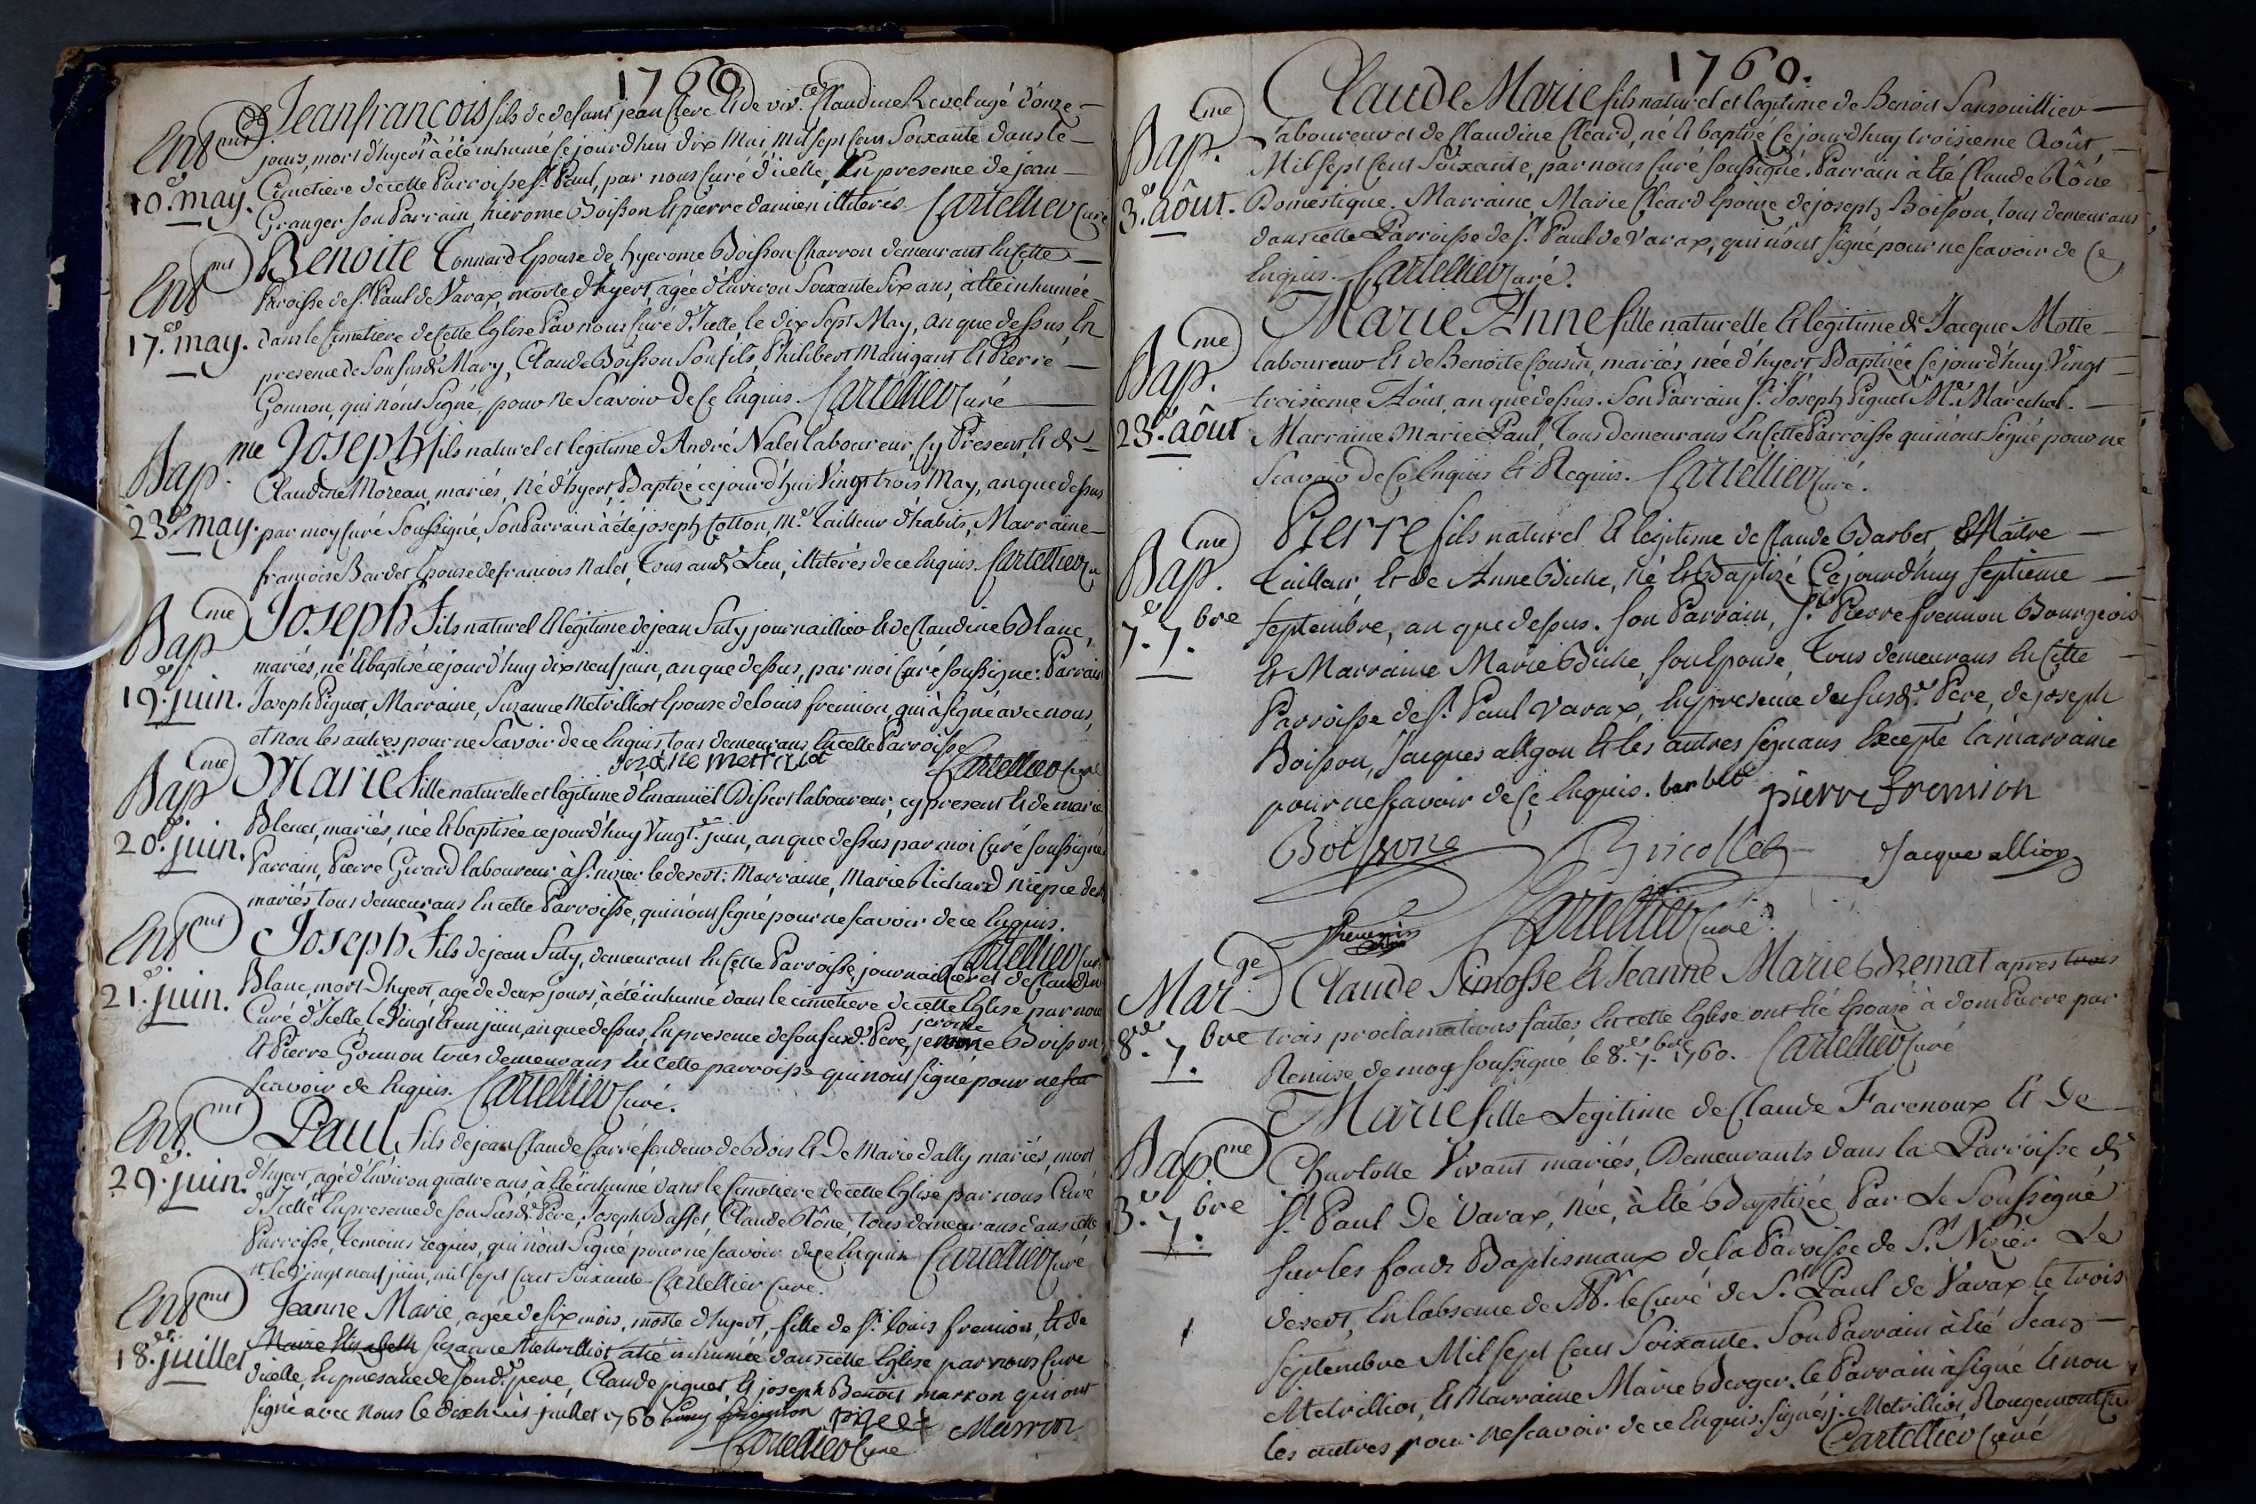 1760
Ent.mt Jeanfrancois fils de defunt jean Clerc Et de viv.te Claudine Revel agé d'onze
jours, mort d'hyert à été inhumé Ce jourdhui dix Mai Mil sept cens Soixante dans le
10.e may. Cimetiere de cette Parroisse St. Paul, par nous Curé d'icelle, En presence de jean
Granger son Parrain, hierome Boisson Et pierre damien illiterés. Cartellier Curé
Ent.mt Benoite Connard Epouse de hyerome Boisson Charron demeurant En Cette
Paroisse de St. Paul de Varax, morte d'hyert, agée d'Environ Soixante Six ans, à été inhumée
17.e may. dans le Cimetiere de Cette Eglise Par nous Curé d'Icelle, le dix Sept May, an que dessus, En
presence de Son susdt. Mary, Claude Boisson Son fils, Philibert Manigant Et Pierre
Gonnon, qui n'ont Signé, pour Ne Scavoir De Ce Enquis. Cartellier Curé
Bap.me Joseph fils naturel et legitime d'André Nalet laboureur, Cy Present, Et de
Claudine Moreau, mariés, Né d'hyert, Baptizé ce jourd'hui Vingt trois May, an que dessus
23.e may. par moy Curé Soussigné, Son Parrain à été joseph Cotton, M.e Tailleur d'habits, Marraine
francoise Bardet Epouse de francois Nalet, Tous aud.t Lieu, illiterés de ce Enquis. Cartellier Cu
Bap.me Joseph Fils naturel Et légitime de jean Suty journaillier Et de Claudine Blanc,
mariés, né Et baptisé ce jourd'huy dix neuf juin, an que dessus, par moi Curé soussigné: Parrain
19.e juin. Joseph Piguet, Marraine, Suzanne Metrilliot Epouse de louis fremion, qui à signé avec nous,
et non les autres pour ne Scavoir de ce Enquis, tous demeurans En cette Parroisse
Cartellier Curé
Bap.me Marie fille naturelle et légitime d'Emanuël Dissert laboureur, cy present Et de marie
Blenet, mariés, née Et baptisée ce jourd'huy Vingt.e juin, an que dessus par moi Curé soussigné
20.e juin. Parrain, Pierre Girard laboureur à St. nizier le desert: Marraine, Marie Richard Niepce des
mariés, tous demeurans En cette Parroisse, qui n'ont signé pour ne scavoir de ce Enquis.
Cartellier Curé
Ent.mt Joseph Fils de jean Suty, demeurant En Cette Parroisse, journaillier et de Claudin
Blanc, mort D'hyert, agé de deux jours, à été inhumé dans le cimetiere de cette Eglise par nous
21.e juin. Curé d'Icelle, le Vingt Et un juin, an que dessus, En presence de son susd.t Pere, jerome Boisson
Et Pierre Gonnon tous demeurans En Cette parroisse qui n'ont signé pour ne sca
Scavoir de Enquis. Cartellier Curé.
Ent.mt Paul, fils de jean Claude Carré fendeur de Bois Et De Marie dally mariés, mort
d'hyert, agé d'Environ quatre ans, à été inhumé dans le Cimetiere de cette Eglise par nous Curé
29.e juin. d'Icelle En presence de son Susdt. Pere, Joseph Baffet, Claude Rôné, tous demeurans dans cette
Parroisse, temoins requis, qui n'ont Signé pour ne scavoir de ce Enquis Cartellier Curé
le Vingt neuf juin, mil sept Cent Soixante. Cartellier Curé.
Ent.mt Jeanne Marie, agée de six mois, morte d'hyert, fille de Sr. louis fremion, Et de
Marie Elizabeth Suzanne Metrilliot à été inhumée dans cette Eglise par nous Curé
18.e juillet d'icelle, En presence de son dt. pere, Claude piguet, Et joseph Benoit marron qui ont
signé avec nous le dixhuit juillet 1760 Louy fremion piget Marron
Cartellier Curé
1760.
Bap.me Claude Marie fils naturel et legitime de Benoit Sansouillier
laboureur et de Claudine Cléard, né Et baptizé Ce jourdhuy troisieme Août,
Mil sept Cent Soixante, par nous Curé soussigné. Parrain à été Claude Rôné
3.e août. Domestique. Marraine, Marie Cléard Epouse de joseph Boisson, tous demeurans
dans cette Parroisse de St. Paul de Varax, qui n'ont signé pour ne scavoir de Ce
Enquis. Cartellier Curé.
Bap.me Marie Anne fille naturelle Et légitime de Jacque Motte
laboureur Et de Benoite Cousin, mariés, née d'hyert Baptizée Ce jourd'huy Vingt
troisieme Août, an que dessus. Son Parrain Sr. Joseph Piguet M.e Maréchal.
23.e août Marraine Marie Paul, Tous demeurans En Cette Parroisse qui n'ont Signé pour ne
Scavoir de Ce Enquis Et Requis. Cartellier Curé.
Bap.me Pierre fils naturel Et légitime de Claude Barbet Maître
Tailleur, Et de Anne Biche, né Et Baptizé Ce jourdhuy septieme
7.e 7.bre septembre, an que dessus. Son Parrain, Sr. Pierre fremion Bourgeois
Et Marraine Marie Biche, son Epouse, Tous demeurans En Cette
Parroisse de St. Paul Varax, En presence du susdt. Pere, de joseph
Boisson, Jacques allyon Et les autres signans Excepté la marraine
pour ne scavoir de Ce Enquis. barbet pierre fremion
Boissone Jacque allion
Cartellier Curé.
Mar.ge Claude Simosse Et Jeanne Marie Bremat apres trois
trois proclamations faites En cette Eglise ont été Epousé à domparre par
8.e 7.bre Remise de moy soussigné le 8.e 7.bre 1760. Cartellier Curé
Bap.me Marie fille Légitime de Claude Farenoux Et de
Charlotte Vivant mariés, Demeurants dans la Parroisse de
3.e 7.bre St. Paul De Varax, Née, à été Baptisée Par Le Soussigné
sur les fonds Baptismaux de la Paroisse de St. Nizier Le
desert, En labsence de Mr. le Curé de St. Paul de Varax le trois
Septembre Mil sept Cens Soixante. Son Parrain à été Jean
Metrilliot, Et Marraine Marie Berger. Le Parrain à signé Et non
les autres pour ne scavoir de ce Enquis. Signés j. Metrilliot, Rougemont Cu
Cartellier Curé